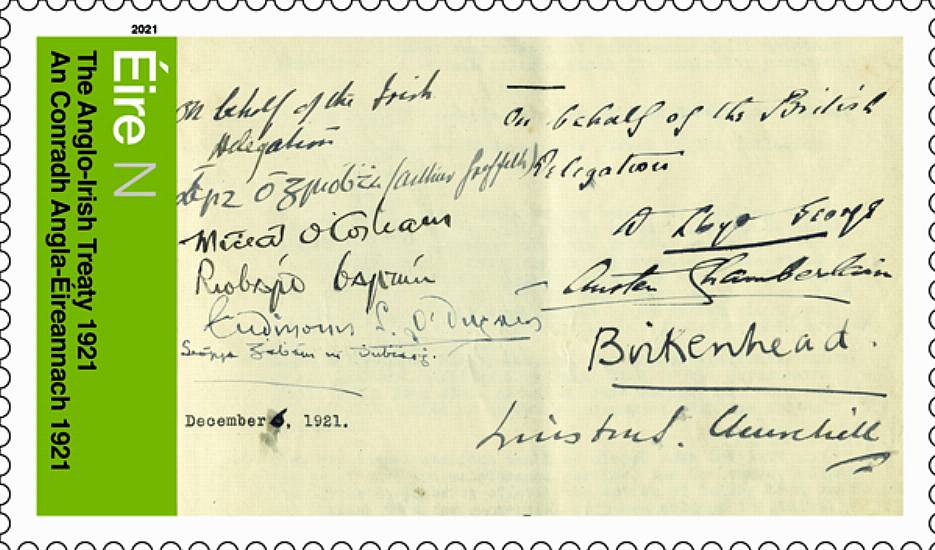 2021
Éire N
The Anglo-Irish Treaty 1921
An Conradh Angla-Éireannach 1921
On behalf of the Irish
Delegation
Art Ó Gríobhtha (Arthur Griffith)
Mícheál Ó Coileain
Riobárd Bartún
Eudhmonn S. Ó Dugáin
Seórsa Ghabháin uí Dhubhthaigh.
December 6, 1921.
On behalf of the British
Delegation
D Lloyd George
Austen Chamberlain
Birkenhead.
Winston S. Churchill